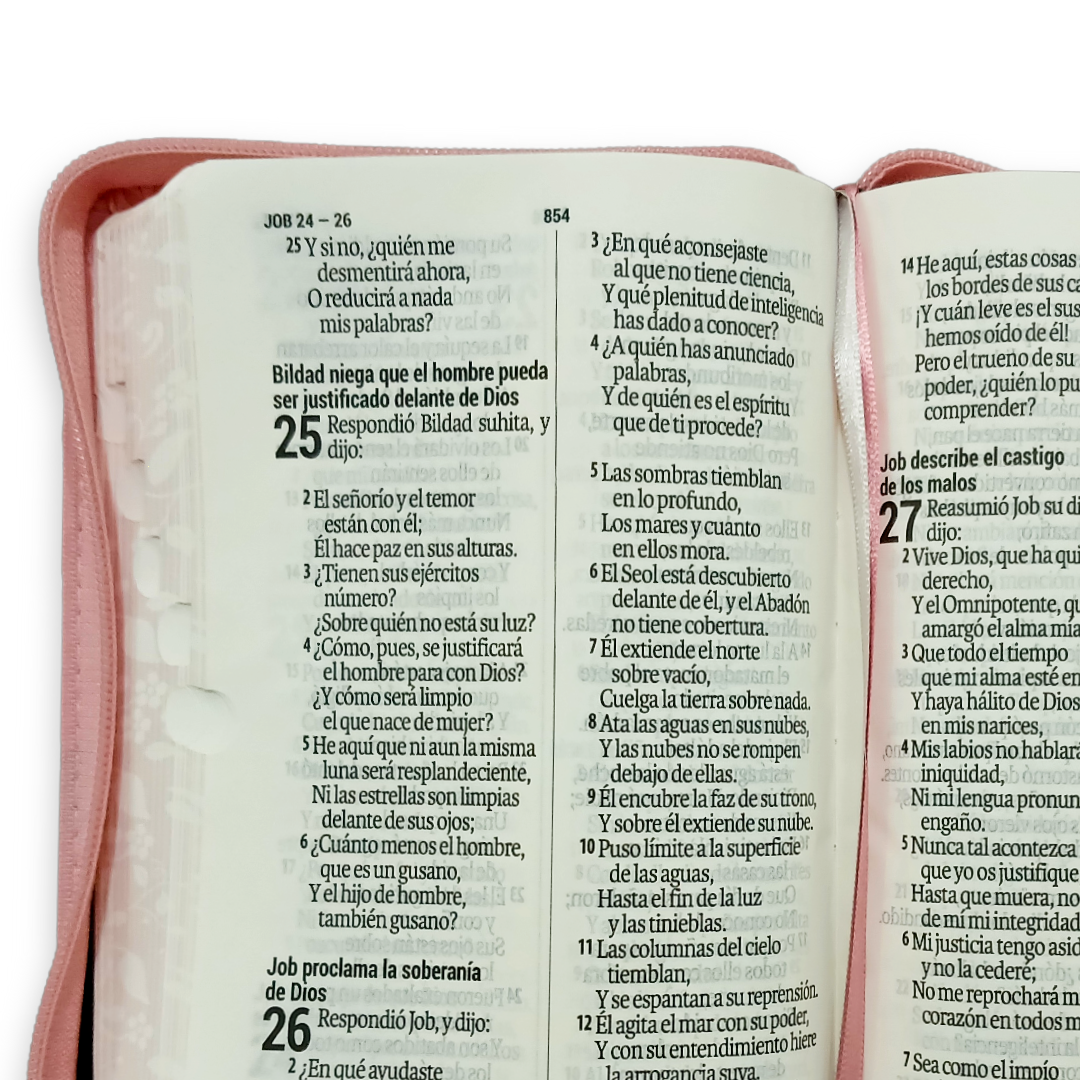 JOB 24 – 26
854
25 Y si no, ¿quién me
desmentirá ahora,
O reducirá a nada
mis palabras?
Bildad niega que el hombre pueda
ser justificado delante de Dios
25 Respondió Bildad suhita, y
dijo:
2 El señorío y el temor
están con él;
Él hace paz en sus alturas.
3 ¿Tienen sus ejércitos
número?
¿Sobre quién no está su luz?
4 ¿Cómo, pues, se justificará
el hombre para con Dios?
¿Y cómo será limpio
el que nace de mujer?
5 He aquí que ni aun la misma
luna será resplandeciente,
Ni las estrellas son limpias
delante de sus ojos;
6 ¿Cuánto menos el hombre,
que es un gusano,
Y el hijo de hombre,
también gusano?
Job proclama la soberanía
de Dios
26 Respondió Job, y dijo:
2 ¿En qué ayudaste
3 ¿En qué aconsejaste
al que no tiene ciencia,
Y qué plenitud de inteligencia
has dado a conocer?
4 ¿A quién has anunciado
palabras,
Y de quién es el espíritu
que de ti procede?
5 Las sombras tiemblan
en lo profundo,
Los mares y cuanto
en ellos mora.
6 El Seol está descubierto
delante de él, y el Abadón
no tiene cobertura.
7 Él extiende el norte
sobre vacío,
Cuelga la tierra sobre nada.
8 Ata las aguas en sus nubes,
Y las nubes no se rompen
debajo de ellas.
9 Él encubre la faz de su trono,
Y sobre él extiende su nube.
10 Puso límite a la superficie
de las aguas,
Hasta el fin de la luz
y las tinieblas.
11 Las columnas del cielo
tiemblan,
Y se espantan a su reprensión.
12 Él agita el mar con su poder,
Y con su entendimiento hiere
la arrogancia suya.
14 He aquí, estas cosas
los bordes de sus ca
¡Y cuán leve es el sus
hemos oído de él!
Pero el trueno de su
poder, ¿quién lo pu
comprender?
Job describe el castigo
de los malos
27 Reasumió Job su di
dijo:
2 Vive Dios, que ha qui
derecho,
Y el Omnipotente, qu
amargó el alma mía
3 Que todo el tiempo
que mi alma esté en
Y haya hálito de Dios
en mis narices,
4 Mis labios no hablará
iniquidad,
Ni mi lengua pronun
engaño.
5 Nunca tal acontezca
que yo os justifique
Hasta que muera, no
de mí mi integridad
6 Mi justicia tengo asid
y no la cederé;
No me reprochará m
corazón en todos m
7 Sea como el impío